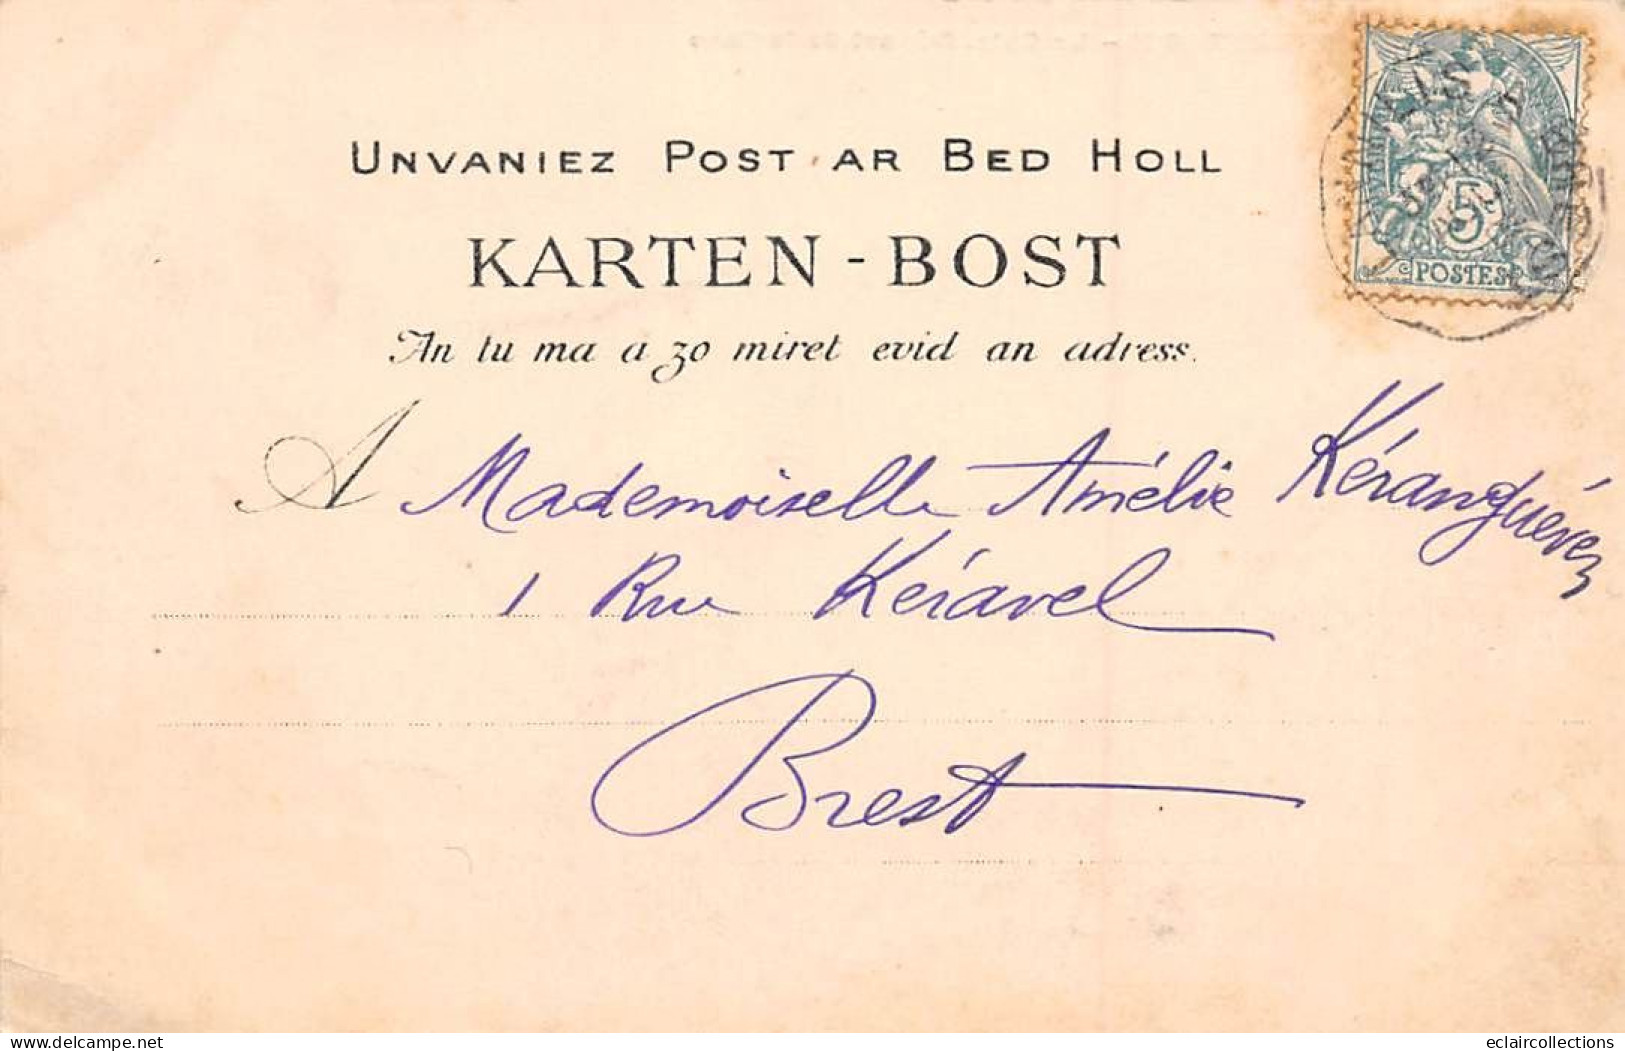 UNVANIEZ POST AR BED HOLL
KARTEN-BOST
An tu ma a zo miret evid an adress.
A Mademoiselle Amélie Kéranguévez
1 Rue Kéravel
Brest
5
POSTES
eclaircollections